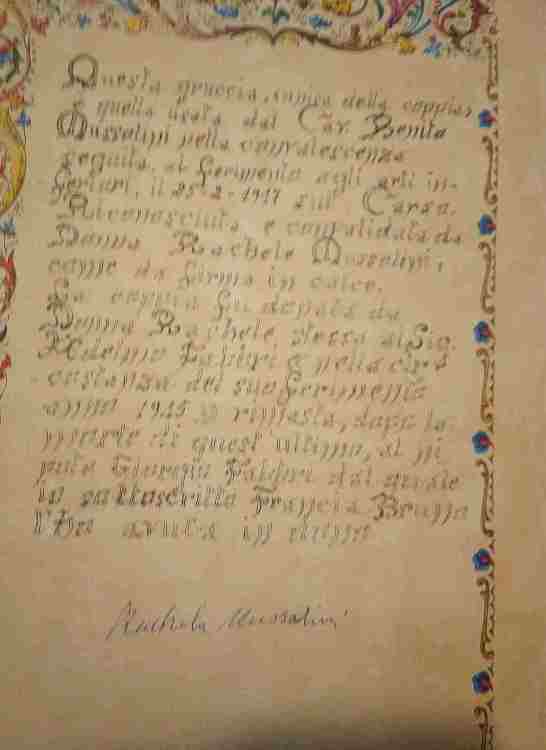 Questa gruccia, unica della coppia,
è quella usata dal Cav. Benito
Mussolini nella convalescenza
seguita al ferimento agli arti in-
feriori, il 25-2-1917 sul Carso.
Riconosciuta e convalidata da
Donna Rachele Mussolini,
come da firma in calce.
La coppia fu donata da
Donna Rachele stessa al Sig.
Adelmo e nella cir-
costanza del suo ferimento
anno 1945 rimasta, dopo la
morte di quest'ultimo, al ni
pote Giorgio dal quale
io sottoscritto Francia Bruno
l'ho avuta in dono
Rachele Mussolini